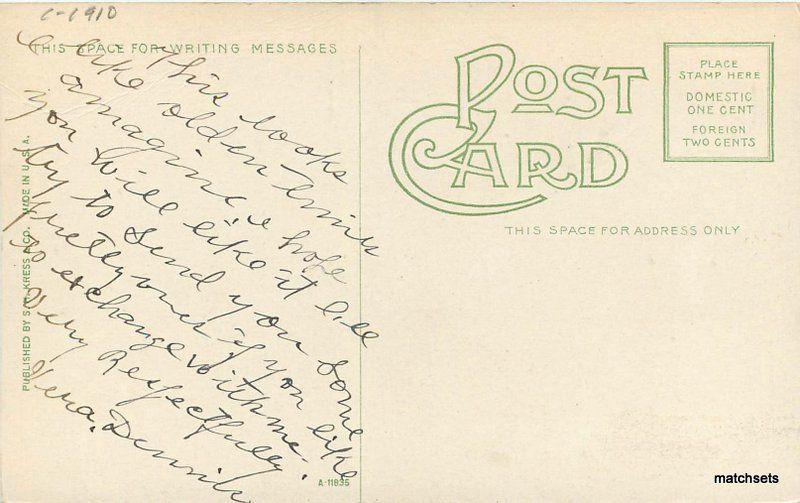 c-1910
THIS SPACE FOR WRITING MESSAGES
This looks
like olden times
I amagine & hope
you will like it ill
try to send you some
pretty ones if you like
to exchange with me.
Very Respectfully
Vera.
PUBLISHED BY S.H. KRESS & CO. MADE IN U.S.A.
A-11835
POST CARD
THIS SPACE FOR ADDRESS ONLY
PLACE
STAMP HERE
DOMESTIC
ONE CENT
FOREIGN
TWO CENTS
matchsets